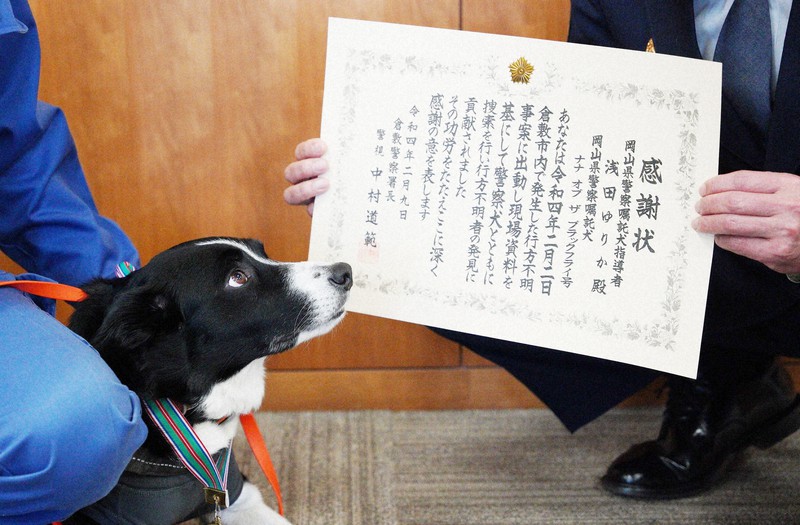 感謝状
岡山県警察嘱託犬指導者
浅田ゆりか殿
岡山県警察嘱託犬
ナナ オブ ザ ブラックフライ号
あなたは令和四年二月二日
倉敷市内で発生した行方不明
事案に出動し現場資料を
基にして警察犬とともに
捜索を行い行方不明者の発見に
貢献されました
その功労をたたえここに深く
感謝の意を表します
令和四年二月九日
倉敷警察署長
警視 中村道範